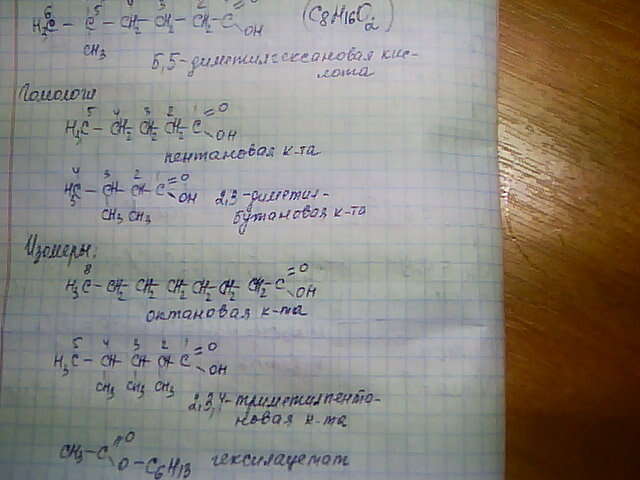 6 5 4 3 2
H3C – C – CH2 – CH2 – CH2 – C OH (C8H16O2)
CH3
5,5-диметилгексановая кис-
лота
Гомологи
5 4 3 2 1
H3C – CH2 – CH2 – CH2 – C = O
OH
пентановая к-та
4 3 2 1
H3C – CH – CH – C = O
OH
CH3 CH3
2,3-диметил-
бутановая к-та
Изомеры:
8
H3C – CH2 – CH2 – CH2 – CH2 – CH2 – CH2 – C = O
OH
октановая к-та
5 4 3 2 1
H3C – CH – CH – CH – C = O
OH
CH3 CH3 CH3
2,3,4-триметилпента-
новая к-та
CH3 – C = O
O – C6H13 гексилацетат